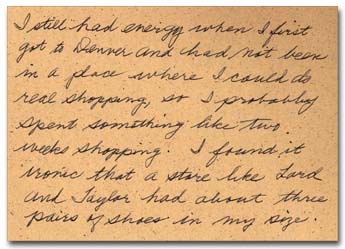 I still had energy when I first
got to Denver and had not been
in a place where I could do
real shopping, so I probably
spent something like two
weeks shopping. I found it
ironic that a store like Lord
and Taylor had about three
pairs of shoes in my size.